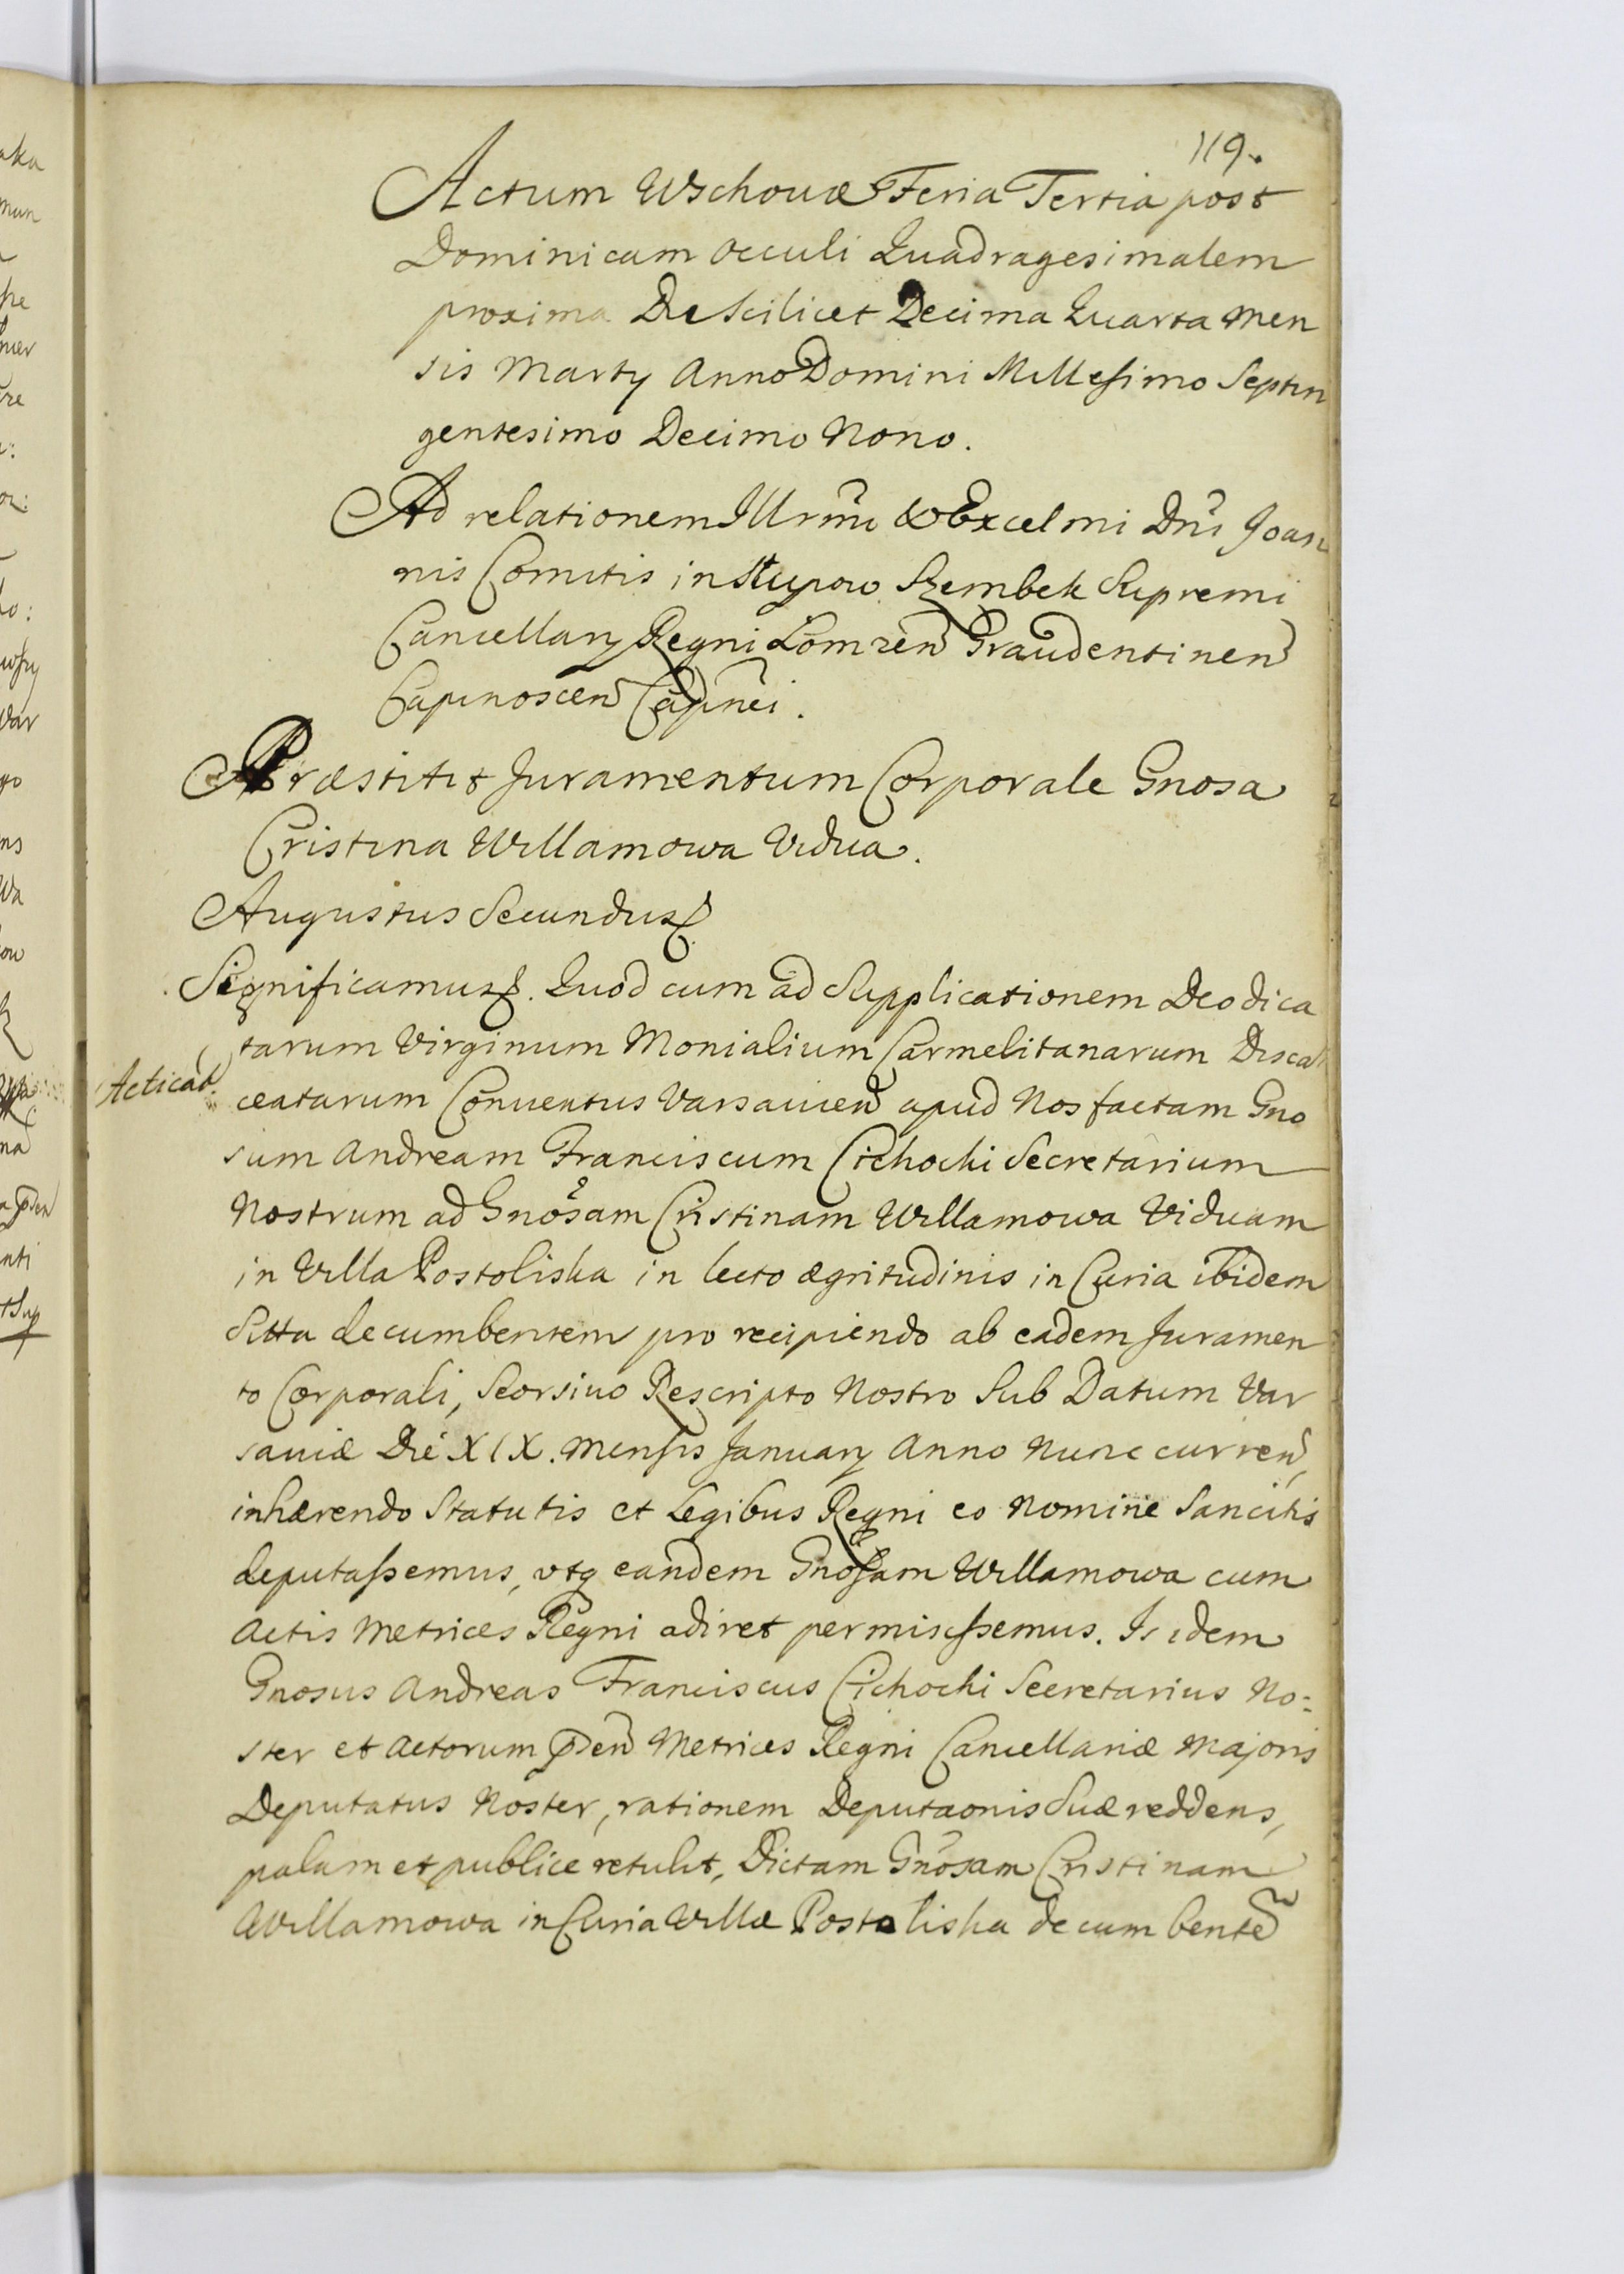 119.
Actum Wschovæ Feria Tertia post
Dominicam Occuli Quadragesimalem
proxima Die scilicet Decima Quarta Men
sis Martÿ Anno Domini Millesimo Septin
gentesimo Decimo Nono.
Ad relationem Illrmi & Excelmi Dni Joan
nis Comitis in Słupow Szembek Supremi
Cancellarÿ Regni Lomzen Graudentinen
Capinoscen Capnei.
Præstitit Juramentum Corporale Gnosa
Cristina Willamowa Vidua.
Augustus Secundus
Significamus. Quod cum ad Supplicationem Deo dica
tarum Virginum Monialium Carmelitanarum Discal
Acticat.
ceatarum Conventus Varsavien apud Nos factam Gno
sum Andream Franciscum Cichocki Secretarium
Nostrum ad Gnosam Cristinam Willamowa Viduam
in Villa Postoliska in lecto ægritudinis in Curia ibidem
Sitta decumbentem pro recipiendo ab eadem Juramen
to Corporali, Seorsivo Rescripto Nostro Sub Datum Var
saviæ Die XIX. Mensis Januarÿ Anno Nunc curren,
inhærendo Statutis et Legibus Regni eo Nomine Sancitis
deputassemus, utq eandem Gnosam Willamowa cum
Actis Metrices Regni adiret permisissemus. Is idem
Gnosus Andreas Franciscus Cichocki Secretarius No=
ster et Actorum pden Metrices Regni Cancellariæ Majoris
Deputatus Noster, rationem Deputaonis Suæ reddens,
palam et publice retulit, Dictam Gnosam Cristinam
Willamowa in Curia Villæ Postoliska decumbente